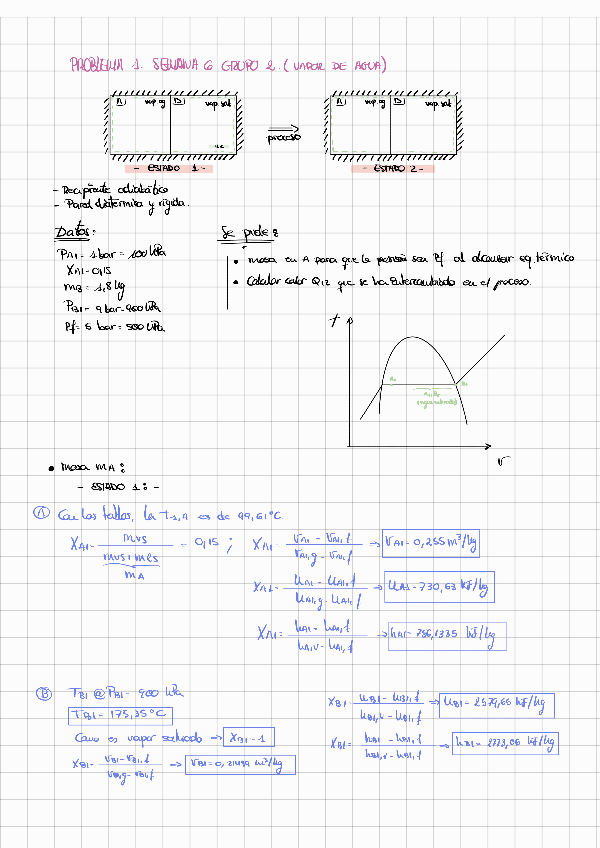 PROBLEMA 1. SEMANA 6 GRUPO 2. (VAPOR DE AGUA)
A) vap sat
B) vap sat
proceso
- ESTADO 1 -
- ESTADO 2 -
- Recipiente adiabático
- Pared diatérmica y rígida.
Datos:
PA1 = 1 bar = 100 kPa
XA1 = 0,15
mB = 1,8 kg
PB1 = 9 bar = 900 kPa
Pf = 5 bar = 500 kPa
Se pide:
• masa en A para que la presión sea Pf al alcanzar eq. térmico
• Calcular calor Q12 que se ha intercambiado en el proceso.
T
v
• masa mA:
- ESTADO 1: -
A Con las tablas, la T1,A es de 99,61°C.
XA1 = mvs / (mvs + mls) = 0,15 ;
mA
XA1 = (vA1 - vA1,f) / (vA1,g - vA1,f) → vA1 = 0,255 m³/kg
XA1 = (uA1 - uA1,f) / (uA1,g - uA1,f) → uA1 = 730,63 kJ/kg
XA1 = (hA1 - hA1,f) / (hA1,v - hA1,f) → hA1 = 756,1335 kJ/kg
B TB1 @ PB1 = 900 kPa
TB1 = 175,35°C
Como es vapor saturado → XB1 = 1
XB1 = (vB1 - vB1,f) / (vB1,g - vB1,f) → vB1 = 0,21489 m³/kg
XB1 = (uB1 - uB1,f) / (uB1,v - uB1,f) → uB1 = 2579,66 kJ/kg
XB1 = (hB1 - hB1,f) / (hB1,v - hB1,f) → hB1 = 2773,06 kJ/kg